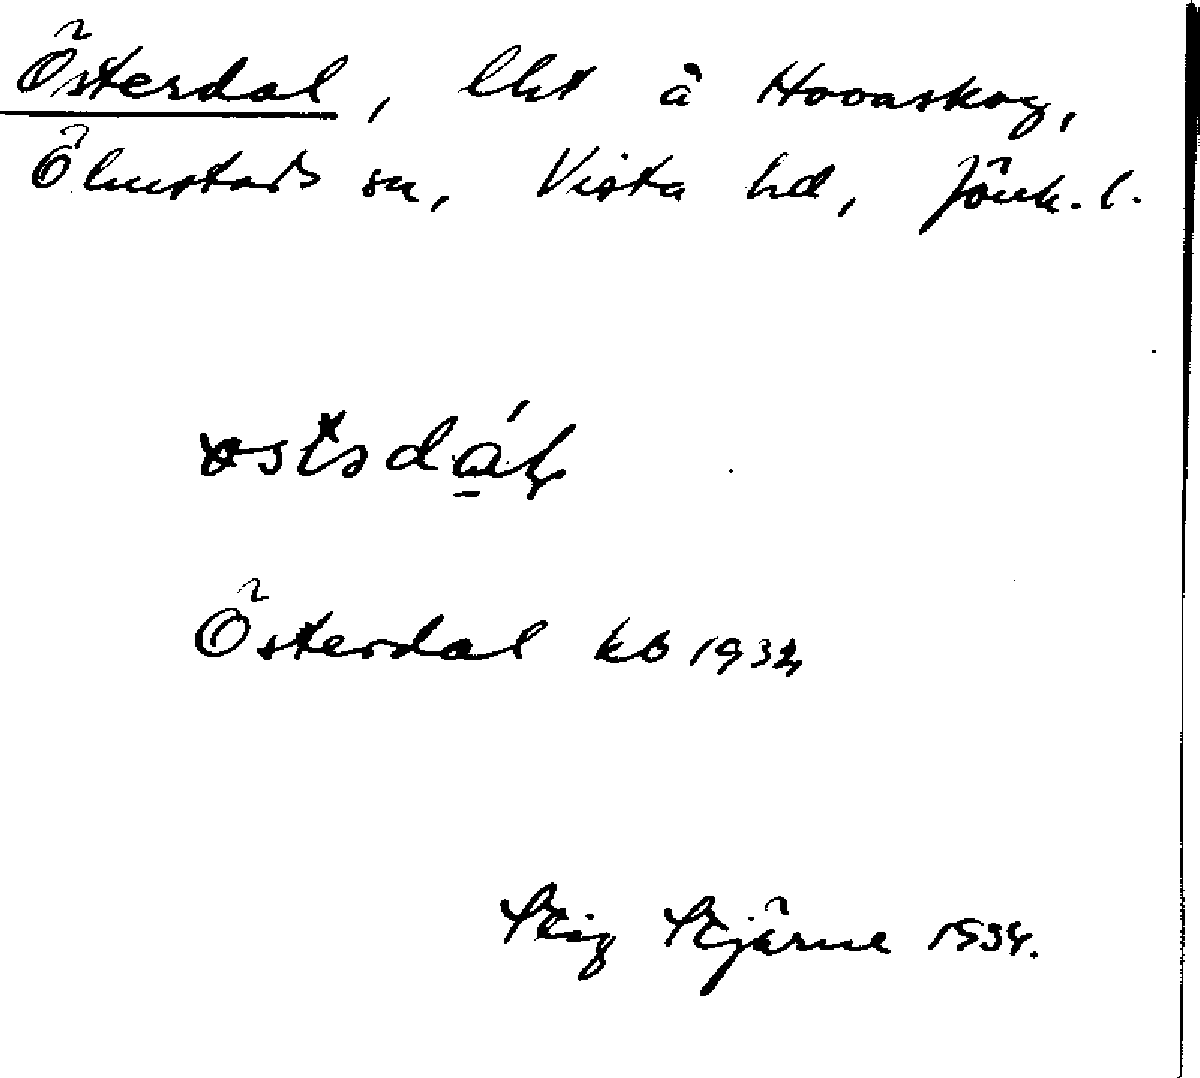 Österdal, lht å Hovaskog,
Ölmstads sn, Vista hd, Jönk. l.
Österdal kb 1934
Stig Stjärne 1934.